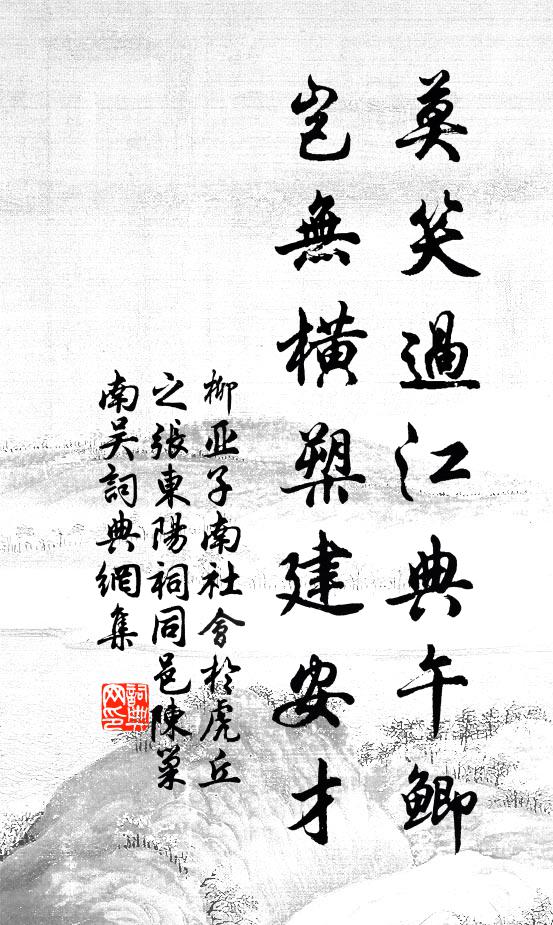 莫笑過江典午鯽
豈無橫槊建安才
柳亚子南社會於虎丘
之張東陽祠同邑陳巢
南吴詞典網集
詞典
网印